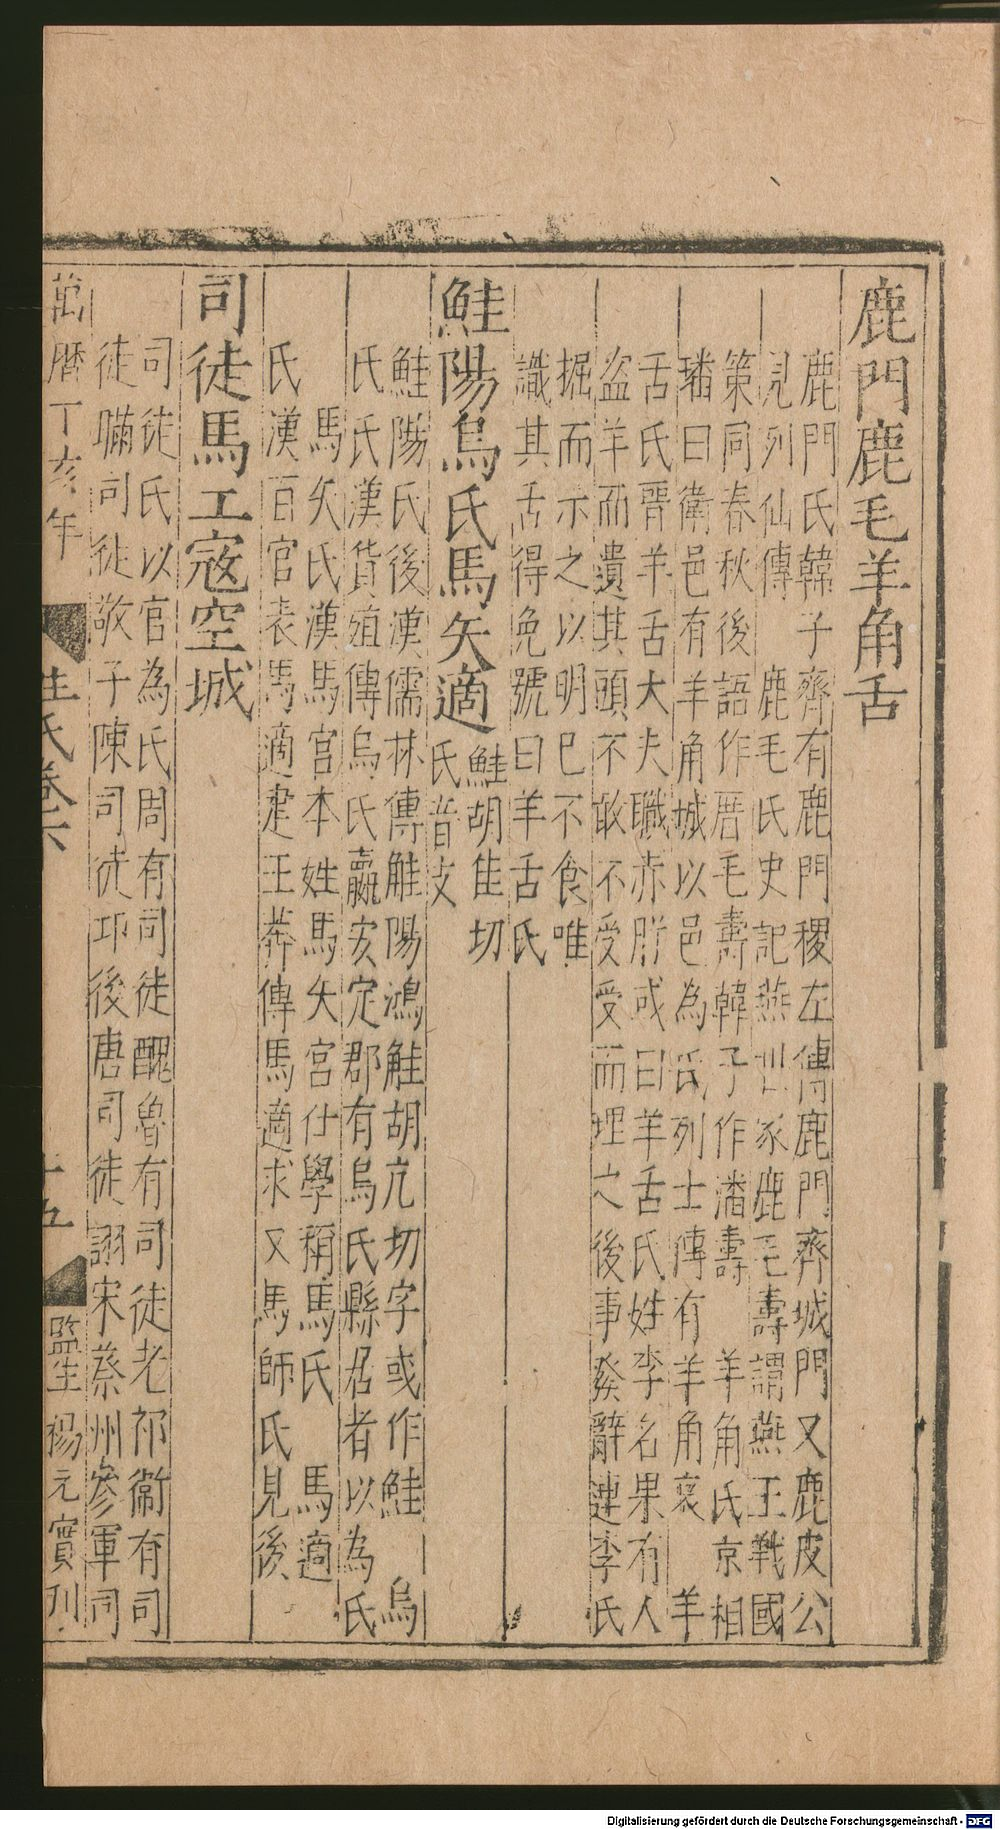 鹿門鹿毛羊角舌
鹿門氏韓子齊有鹿門稷左傳鹿門齊城門又鹿皮公
見列仙傳　鹿毛氏史記燕世家鹿毛壽謂燕王戰國
策同春秋後語作厝毛壽韓子作潘壽　羊角氏京相
璠曰衛邑有羊角城以邑為氏列士傳有羊角哀　羊
舌氏晋羊舌大夫職赤肸或曰羊舌氏姓李名果有人
盜羊而遺其頭不敢不受受而埋之後事發辭連李氏
掘而示之以明己不食唯
識其舌得免號曰羊舌氏
鮭陽烏氏馬矢適
鮭胡佳切
氏音支
鮭陽氏後漢儒林傳觟陽鴻觟胡亢切字或作鮭　烏
氏氏漢貨殖傳烏氏臝安定郡有烏氏縣居者以為氏
馬矢氏漢馬宫本姓馬矢宫仕學稱馬氏　馬適
氏漢百官表馬適建王莽傳馬適求又馬師氏見後
司徒馬工寇空城
司徒氏以官為氏周有司徒醜魯有司徒老祁衞有司
徒瞞司徒敬子陳司徒卭後唐司徒詡宋蔡州參軍司
萬暦丁亥年
姓氏卷六
十五
監生楊元實刋
Digitalisierung gefördert durch die Deutsche Forschungsgemeinschaft - DFG